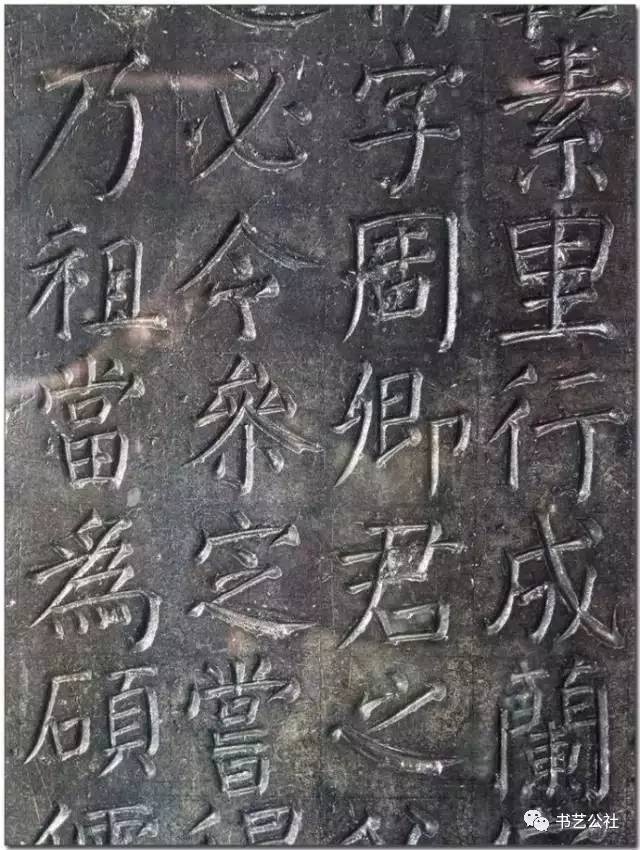 素里行成蘭
字周卿君之
必令參定嘗
乃祖當為碩儒
书艺公社